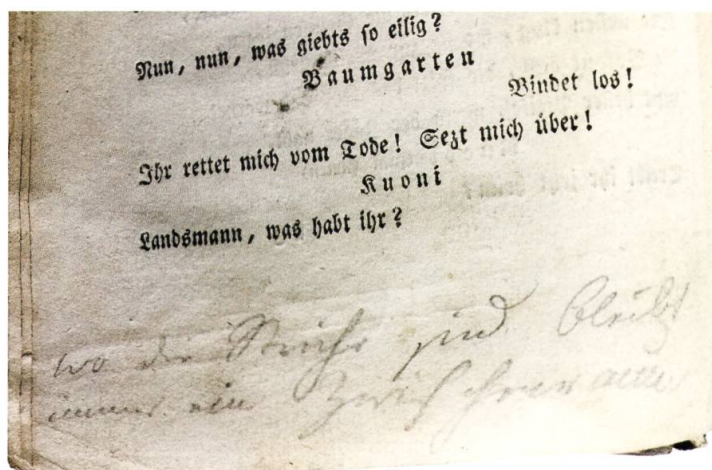 Nun, nun, was giebts so eilig?
Baumgarten
Bindet los!
Ihr rettet mich vom Tode! Sezt mich über!
Kuoni
Landsmann, was habt ihr?
wo die Striche sind bleibt
immer ein